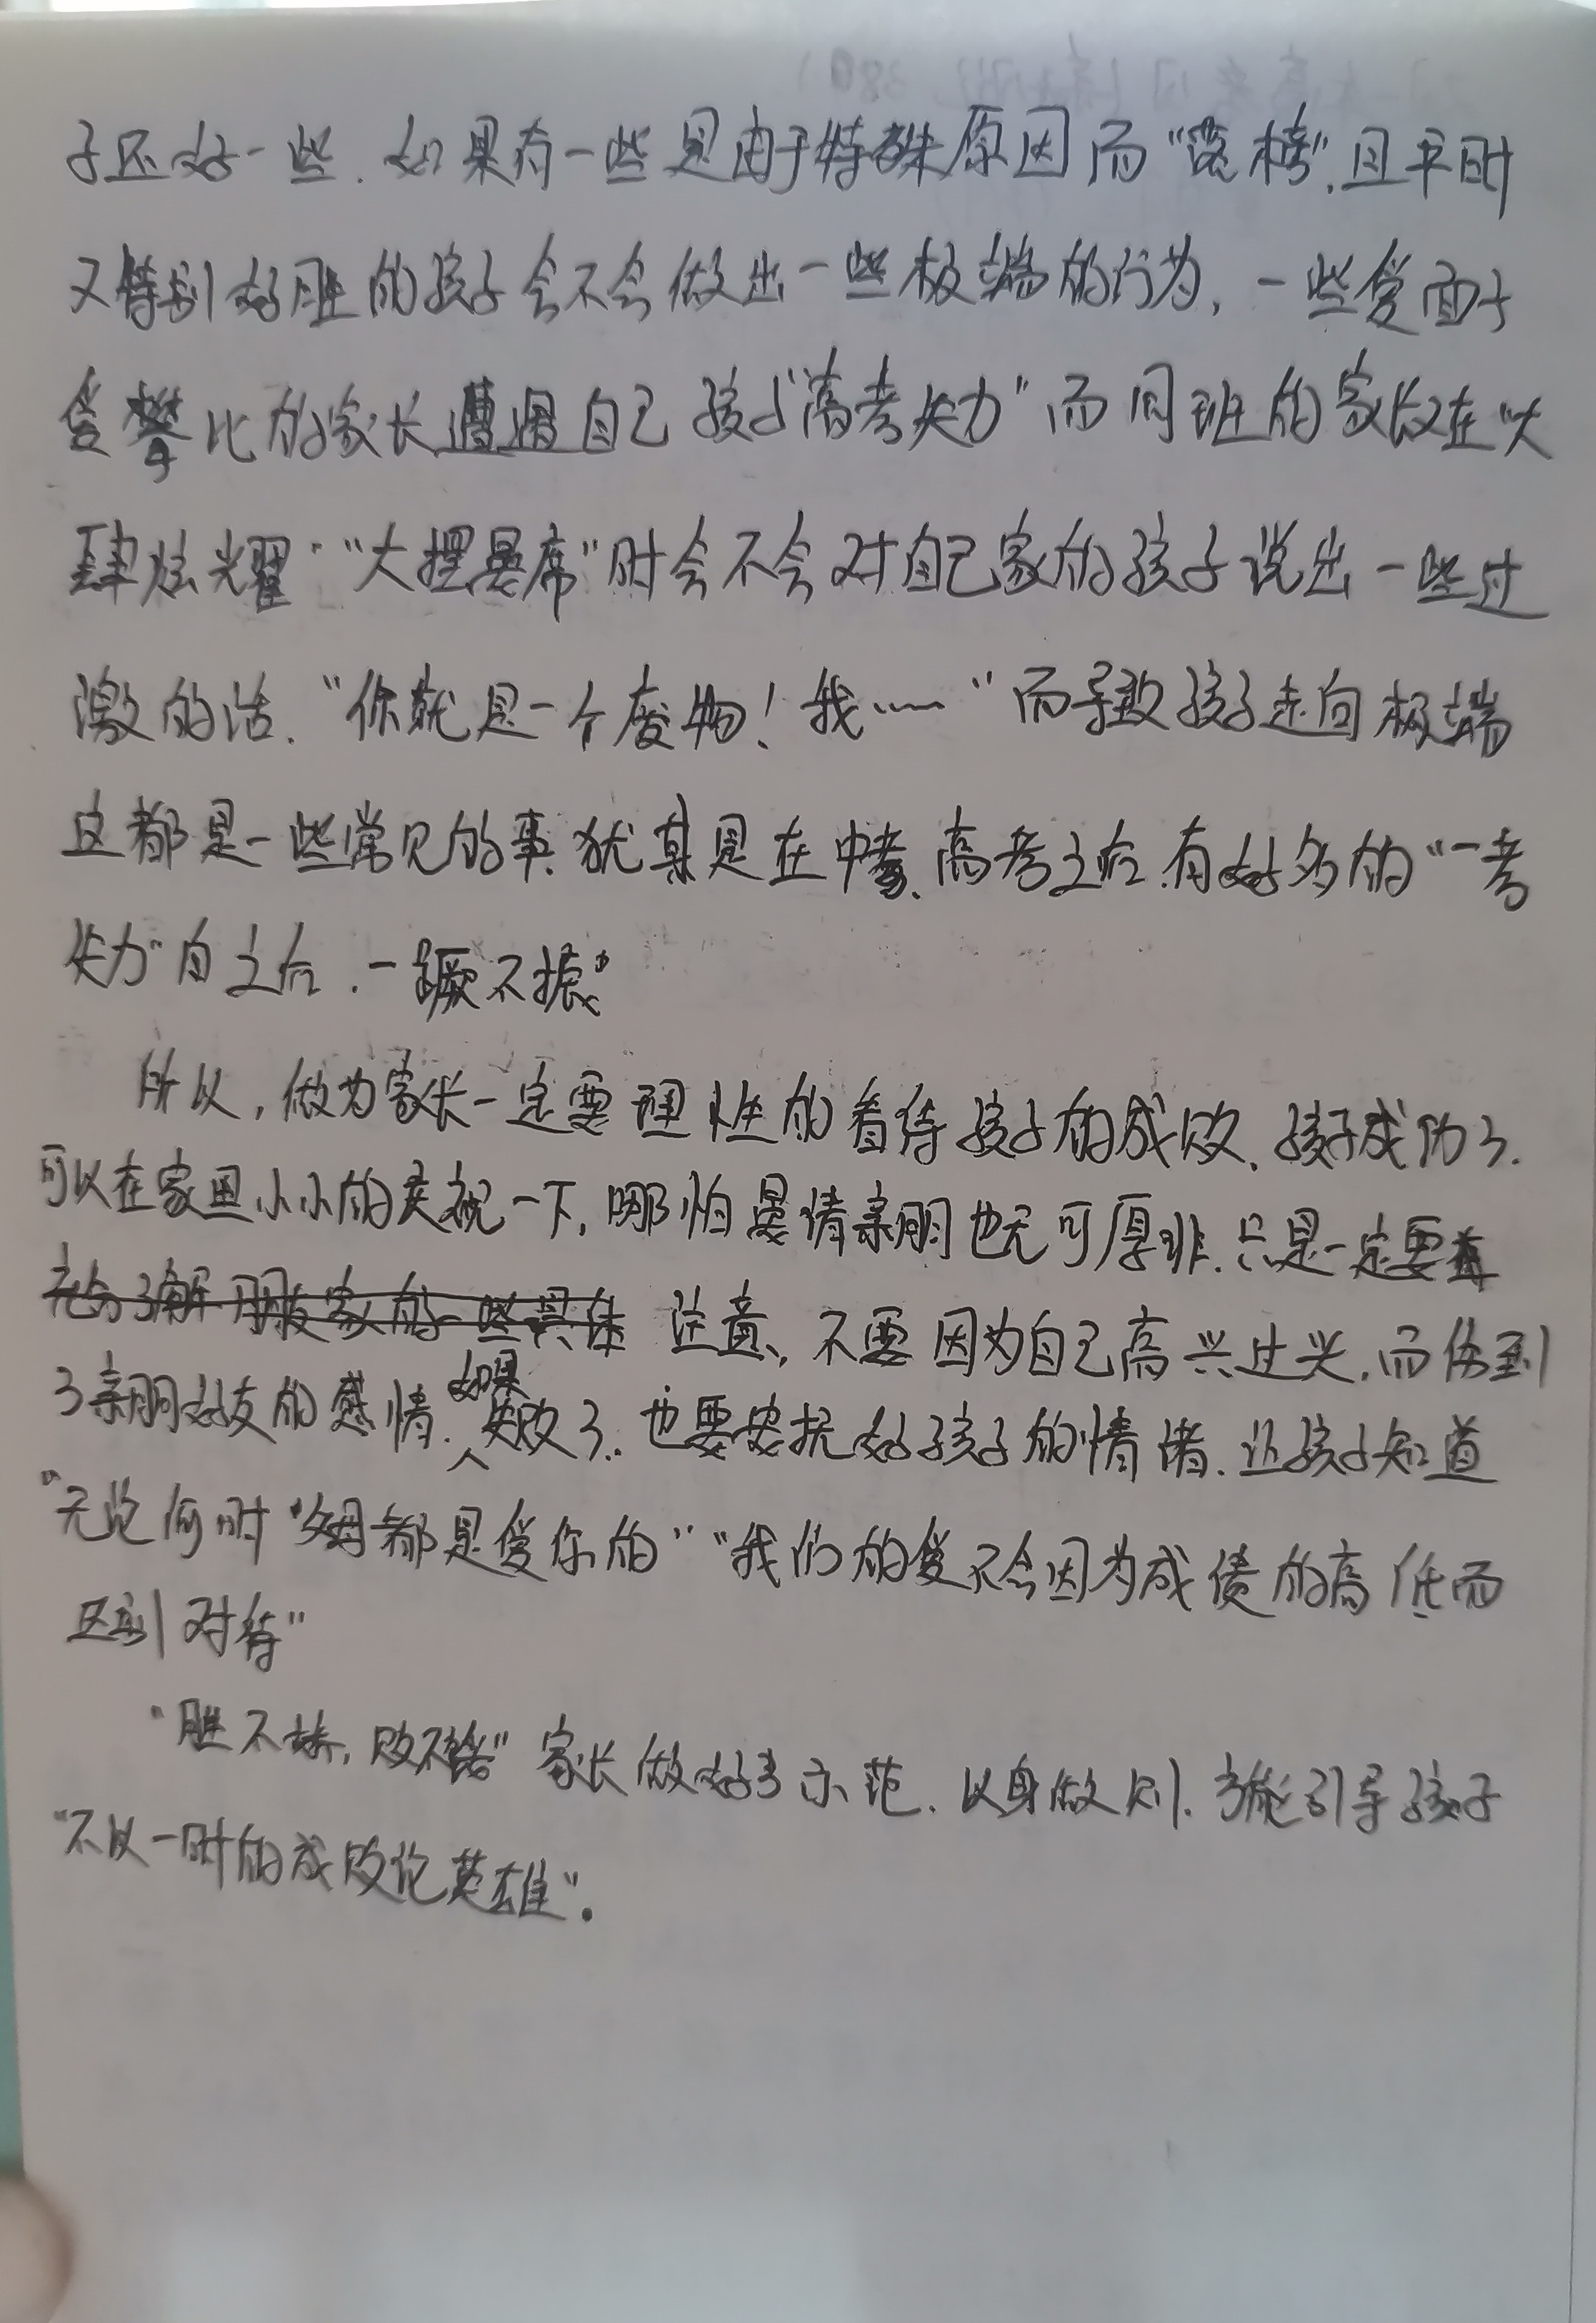 子还好一些.如果有一些是由于特殊原因而“落榜”.且平时
又特别好胜的孩子会不会做出一些极端的行为,一些爱面子
爱攀比的家长遭遇自己孩子“高考失力”而同班的家长在“大
肆炫耀”“大摆宴席”时会不会对自己家的孩子说出一些过
激的话.“你就是一个废物!我……”而导致孩子走向极端
这都是一些常见的事.犹其是在中考、高考之后.有好多的“一考
失力”自之后.一蹶不振”
所以,做为家长一定要理性的看待孩子的成败.孩子成功了.
可以在家里小小的庆祝一下,哪怕宴请亲朋也无可厚非.只是一定要
充分了解朋友家的一些具体 注意,不要因为自己高兴过兴.而伤到
了亲朋好友的感情.如果失败了.也要安抚好孩子的情绪.让孩子知道
“无论何时父母都是爱你的”“我们的爱不会因为成绩的高低而
区别对待”
“胜不骄,败不馁”家长做好示范.以身做则.才能引导孩子
“不以一时的成败论英雄”.